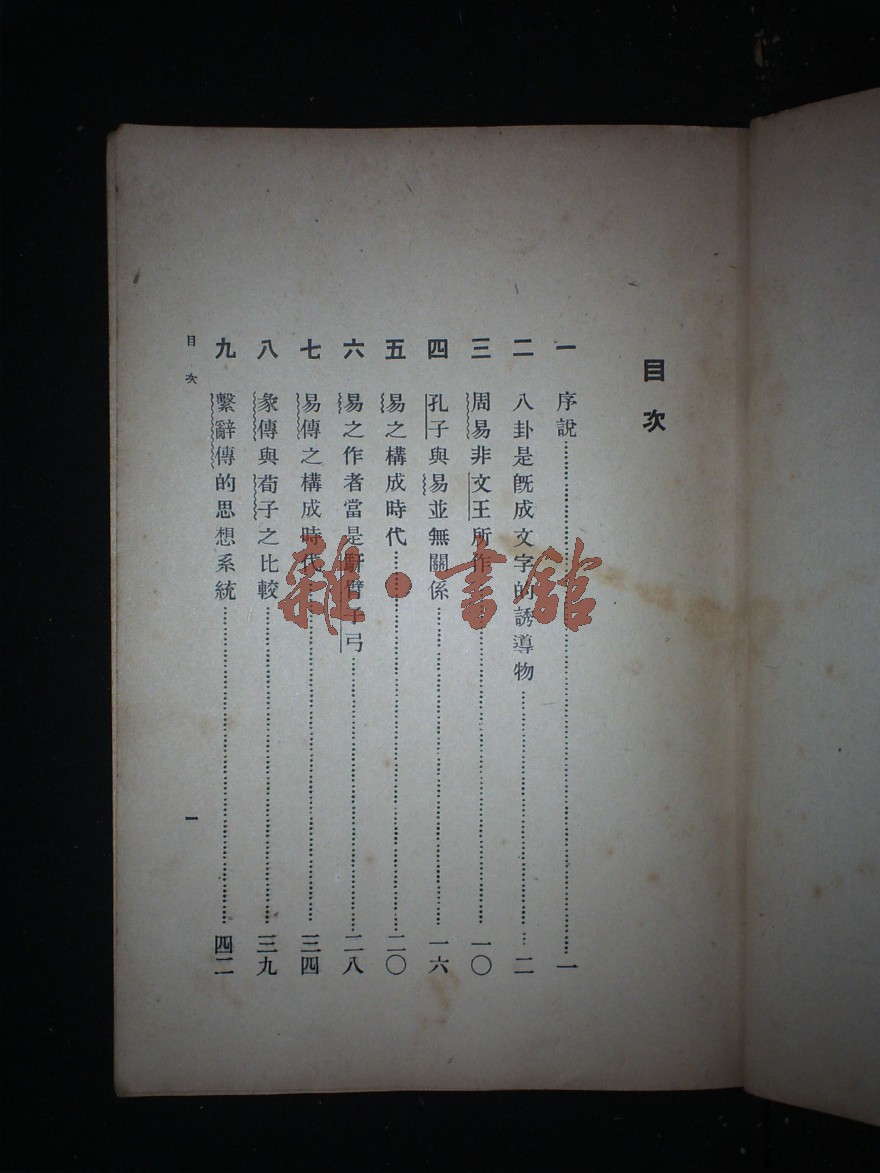 目次
一 序說 一
二 八卦是旣成文字的誘導物 二
三 周易非文王所作 一〇
四 孔子與易並無關係 一六
五 易之構成時代 二〇
六 易之作者當是馯臂子弓 二八
七 易傳之構成時代 三四
八 彖傳與荀子之比較 三九
九 繫辭傳的思想系統 四二
目次
一
雜·書館